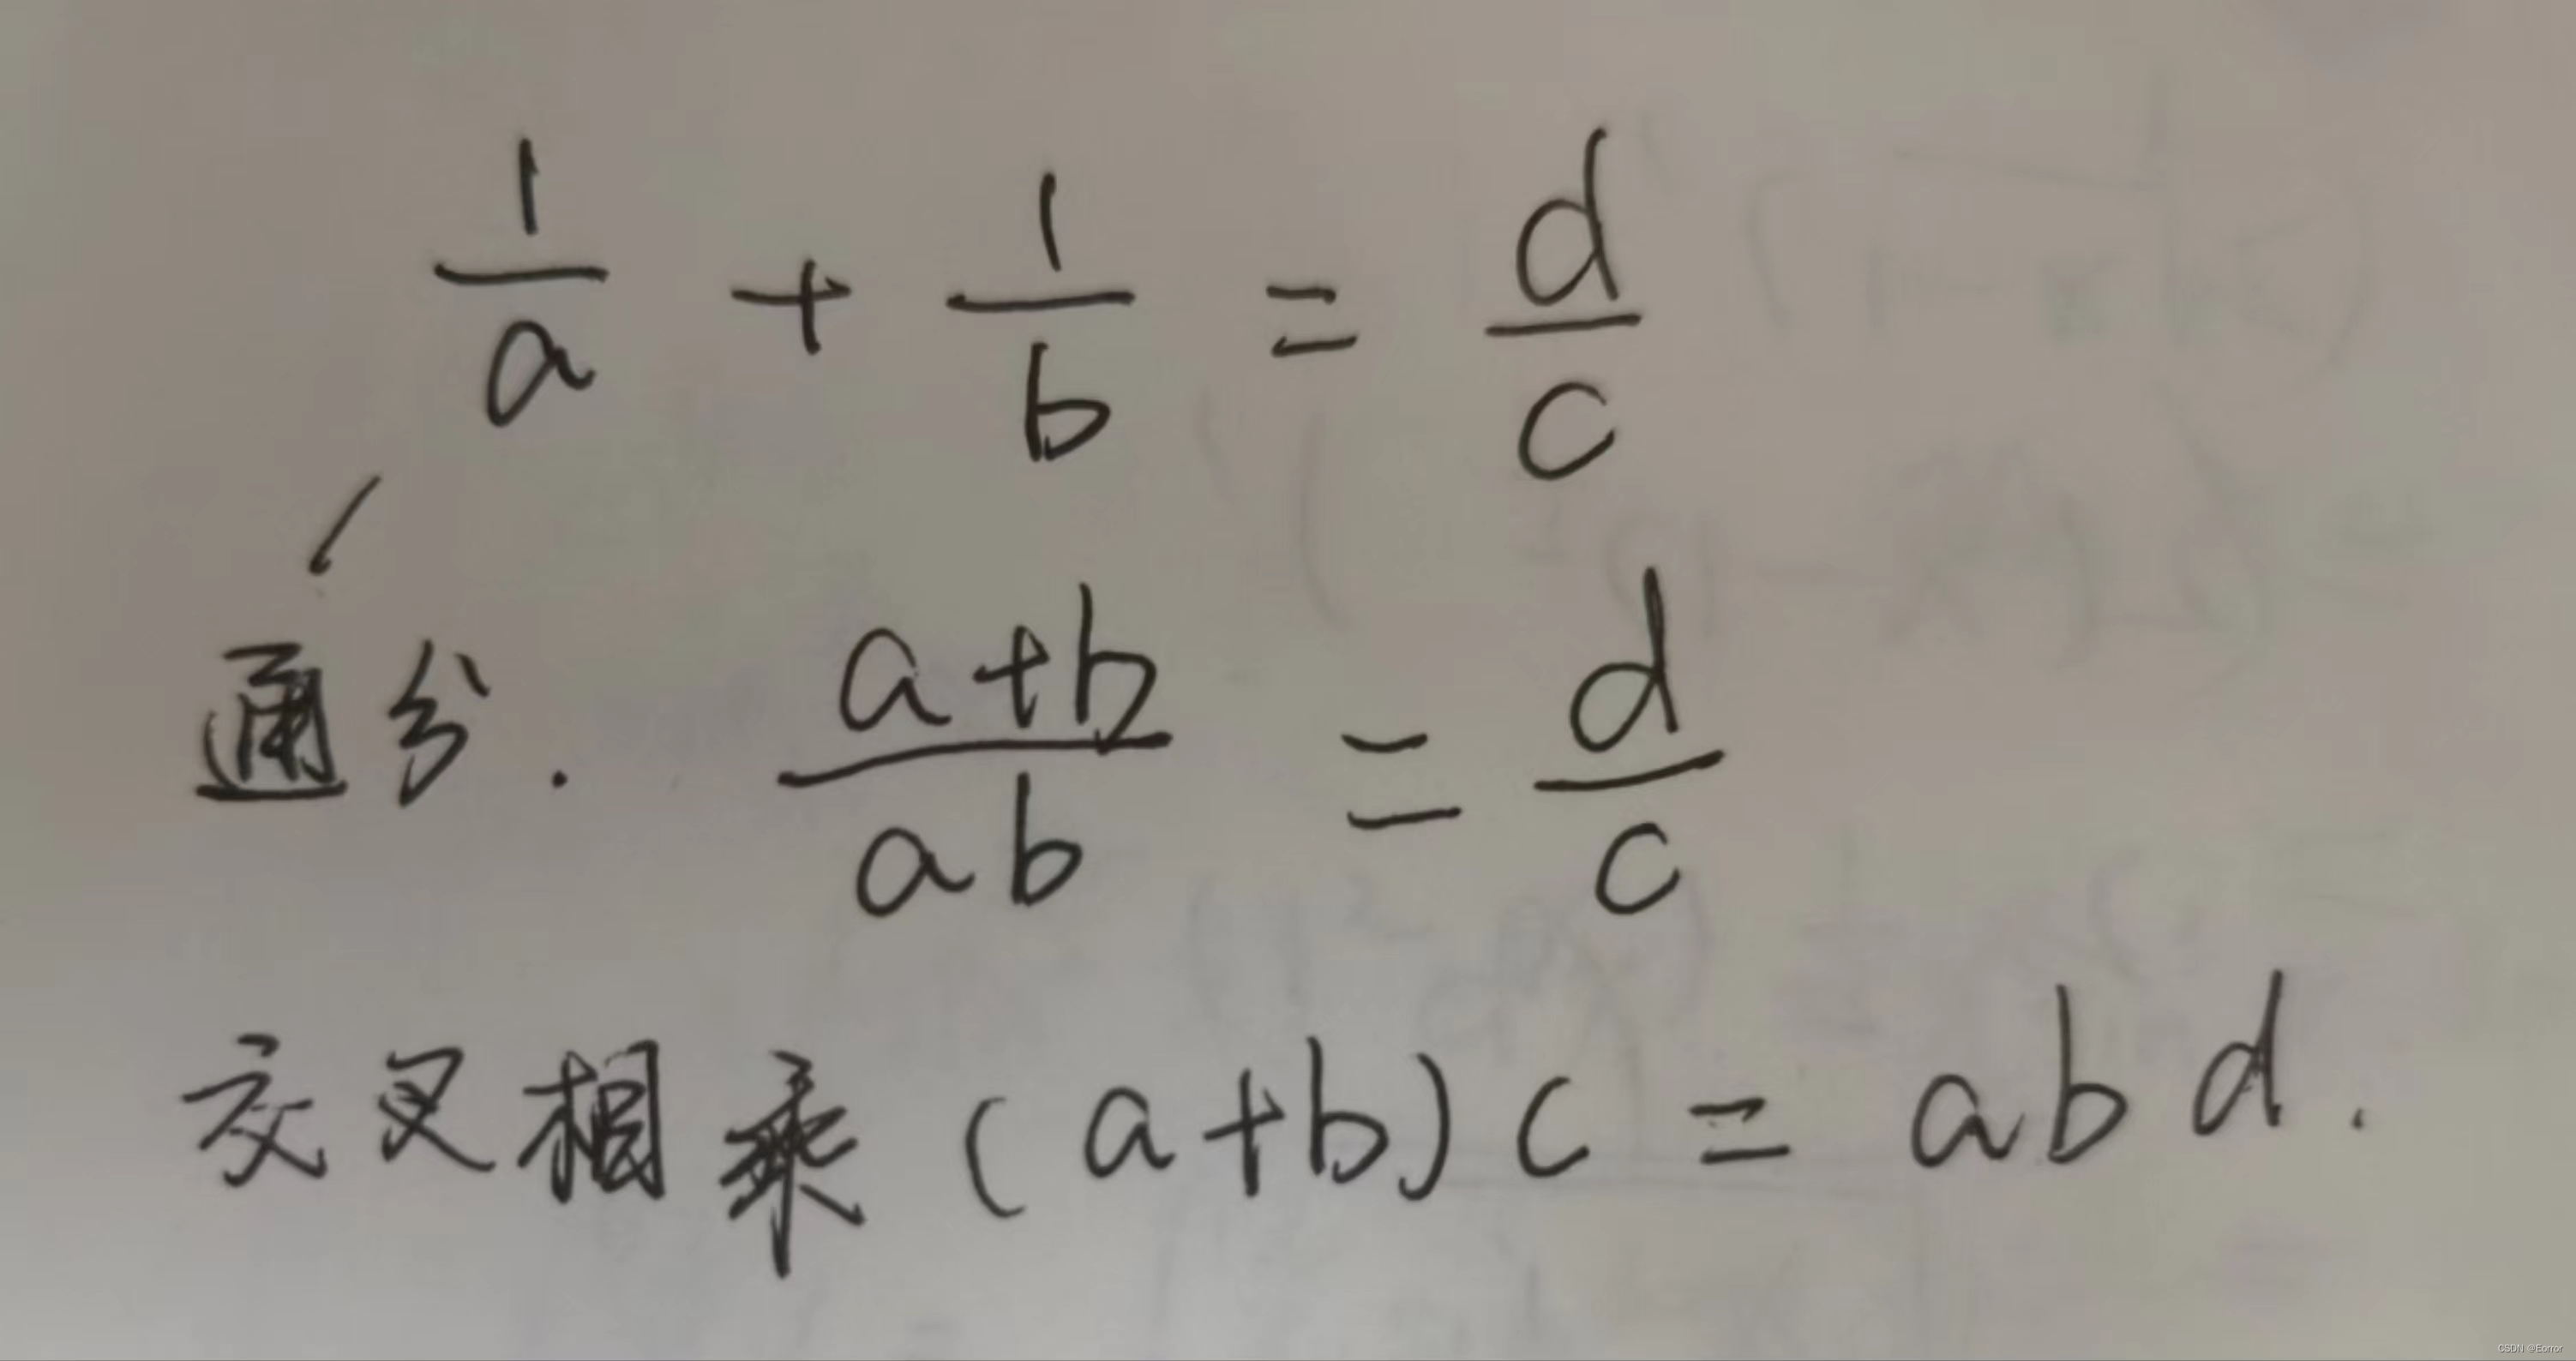 1/a + 1/b = d/c
通分. (a+b)/(ab) = d/c
交叉相乘 (a+b)c = abd.
CSDN @Eorror